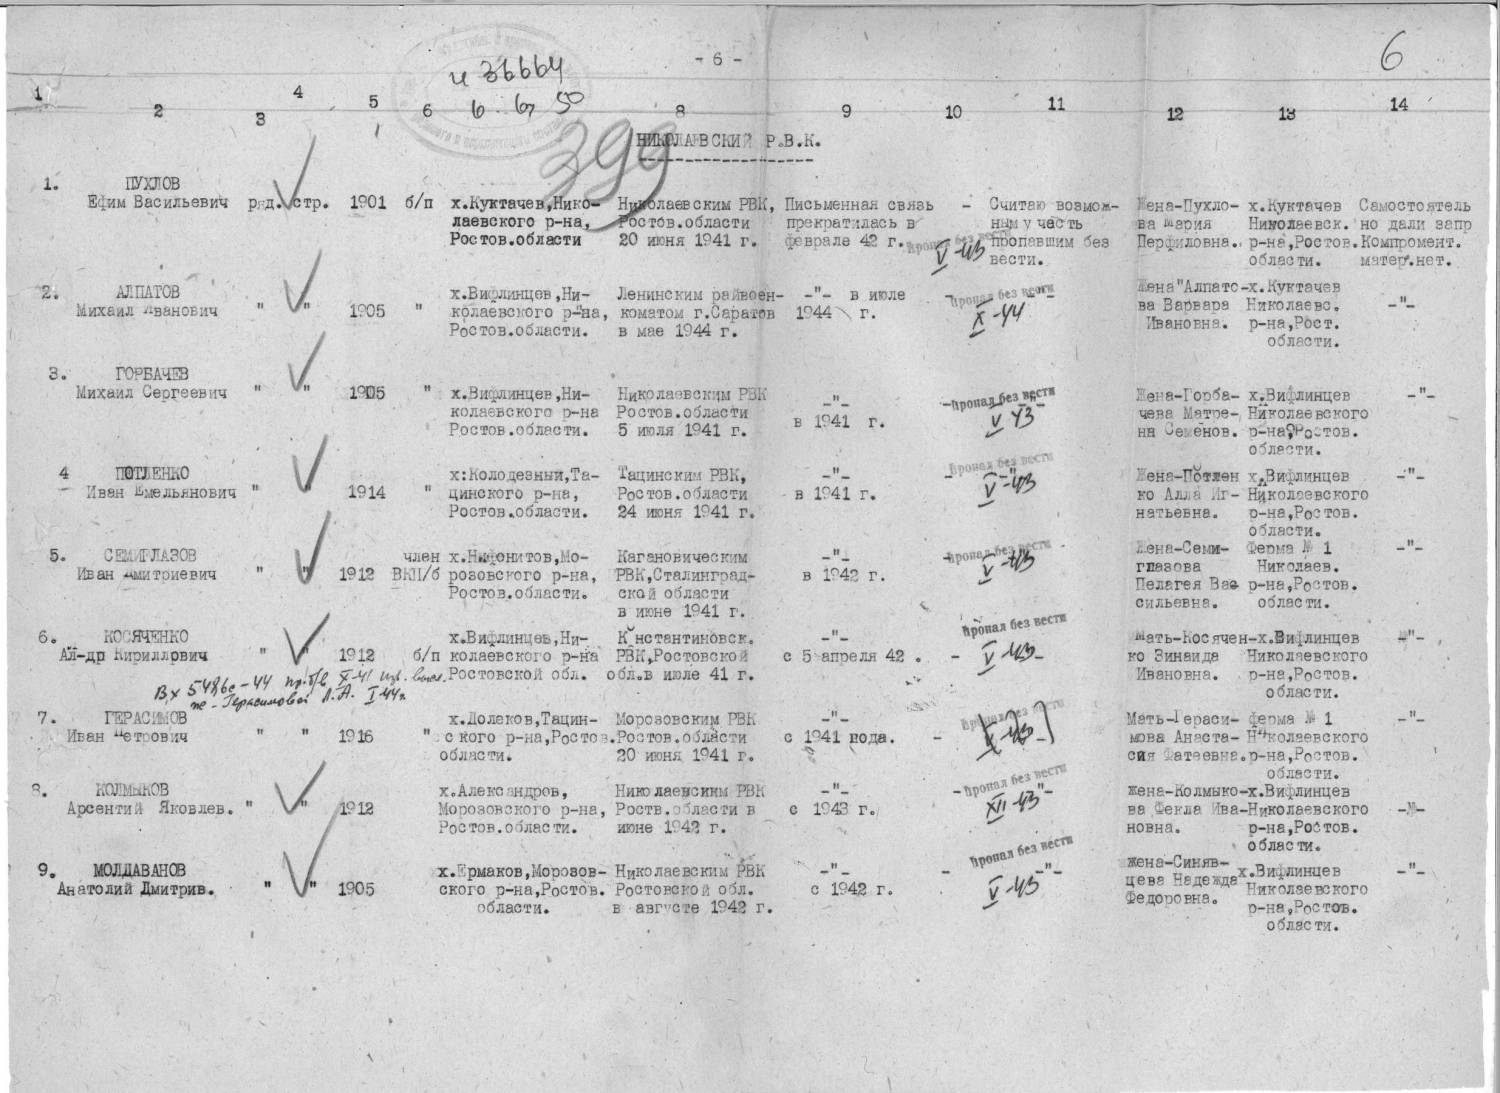 - 6 -
6
и 36664
6 6 50
399
1 2 3 4 5 6 8 9 10 11 12 13 14
НИКОЛАЕВСКИЙ Р.В.К.
1. ПУХЛОВ
Ефим Васильевич ряд. стр. 1901 б/п х.Куктачев,Нико- Николаевским РВК, Письменная связь - Считаю возмож- Жена-Пухло- х.Куктачев Самостоятель
лаевского р-на, Ростов.области прекратилась в ным участь ва Мария Николаевск. но дали запр
Ростов.области 20 июня 1941 г. феврале 42 г. пропал без вести пропавшим без Перфиловна. р-на,Ростов. Компромент.
V-43 вести. области. матер.нет.
2. АЛПАТОВ х.Вифлинцев,Ни- Ленинским райвоен- -"- в июле пропал без вести -"- Жена"Алпатс- х.Куктачев
Михаил Иванович " " 1905 " колаевского р-на, коматом г.Саратов 1944 г. X-44 ва Варвара Николаевс. -"-
Ростов.области. в мае 1944 г. Ивановна. р-на,Рост.
области.
3. ГОРБАЧЕВ
Михаил Сергеевич " " 1905 " х.Вифлинцев,Ни- Николаевским РВК -"- пропал без вести Жена-Горба- х.Вифлинцев -"-
колаевского р-на Ростов.области в 1941 г. V 43 чева Матре- Николаевского
Ростов.области. 5 июля 1941 г. на Семенов. р-на,Ростов.
области.
4 ПОТЛЕНКО х:Колодезный,Та- Тацинским РВК, -"- пропал без вести Жена-Потлен х.Вифлинцев -"-
Иван Емельянович " " 1914 " цинского р-на, Ростов.области в 1941 г. V-43 ко Алла Иг- Николаевского
Ростов.области. 24 июня 1941 г. натьевна. р-на,Ростов.
области.
5. СЕМИГЛАЗОВ член х.Нифонитов,Мо- Кагановическим -"- пропал без вести Жена-Семи- Ферма № 1 -"-
Иван Дмитриевич " " 1912 ВКП/б розовского р-на, РВК,Сталинград- в 1942 г. V-43 глазова Николаев.
Ростов.области. ской области Пелагея Вас р-на,Ростов.
в июне 1941 г. сильевна. области.
6. КОСЯЧЕНКО х.Вифлинцев,Ни- Константиновск. -"- пропал без вести Мать-Косячен- х.Вифлинцев -"-
Ал-др Кириллович " " 1912 б/п колаевского р-на РВК,Ростовской с 5 апреля 42 . - V-43- ко Зинаида Николаевского
Ростовской обл. обл.в июле 41 г. Ивановна. р-на,Ростов.
области.
Вх 5486с-44 пр.б/в XI-41 изв. высл.
же - Герасимовой Л.А. I-44г.
7. ГЕРАСИМОВ х.Долеков,Тацин- Морозовским РВК -"- пропал без вести Мать-Гераси- ферма № 1 -"-
Иван Петрович " " 1916 " ского р-на,Ростов. Ростов.области с 1941 года. - V-43 мова Анаста- Николаевского
области. 20 июня 1941 г. сия Фатеевна. р-на,Ростов.
области.
8. КОЛМЫКОВ х.Александров, Николаевским РВК -"- пропал без вести Жена-Колмыко- х.Вифлинцев
Арсентий Яковлев. " " 1912 Морозовского р-на, Роств.области в с 1943 г. XII-43 ва Фекла Ива- Николаевского -№-
Ростов.области. июне 1942 г. новна. р-на,Ростов.
области.
9. МОЛДАВАНОВ х.Ермаков,Морозов- Николаевским РВК -"- - пропал без вести -"- Жена-Синяв- х.Вифлинцев -"-
Анатолий Дмитрив. " " 1905 ского р-на,Ростов. Ростовской обл. с 1942 г. V-43 цева Надежда Николаевского
области. в августе 1942 г. Федоровна. р-на,Ростов.
области.